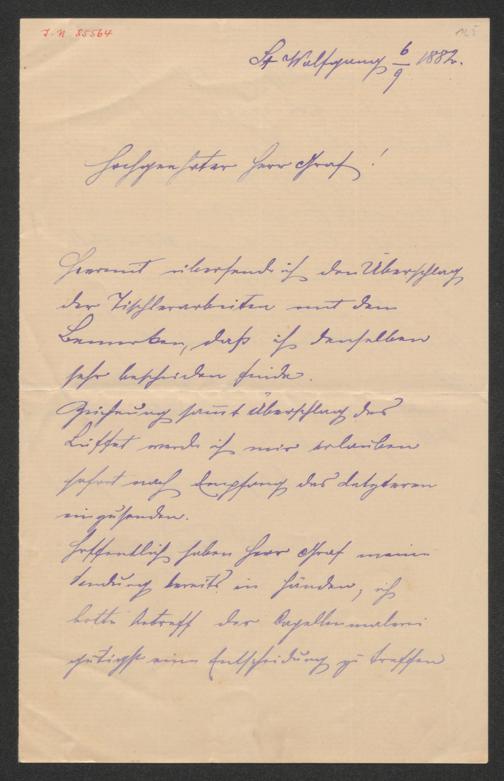 J. N. 85564
St Wolfgang 6/9 1882.
Hochgeehrter Herr Graf!
Hiermit übersende ich den Überschlag
der Tischlerarbeiten mit dem
Bemerken, daß ich denselben
sehr bescheiden finde.
Zeichnung sammt Überschlag des
Buffet werde ich mir erlauben
sofort nach Empfang des Letzteren
einzusenden.
Hoffentlich haben Herr Graf meine
Sendung bereits in Händen, ich
bitte betreff der Capellenmalerei
gütigst eine Entscheidung zu treffen